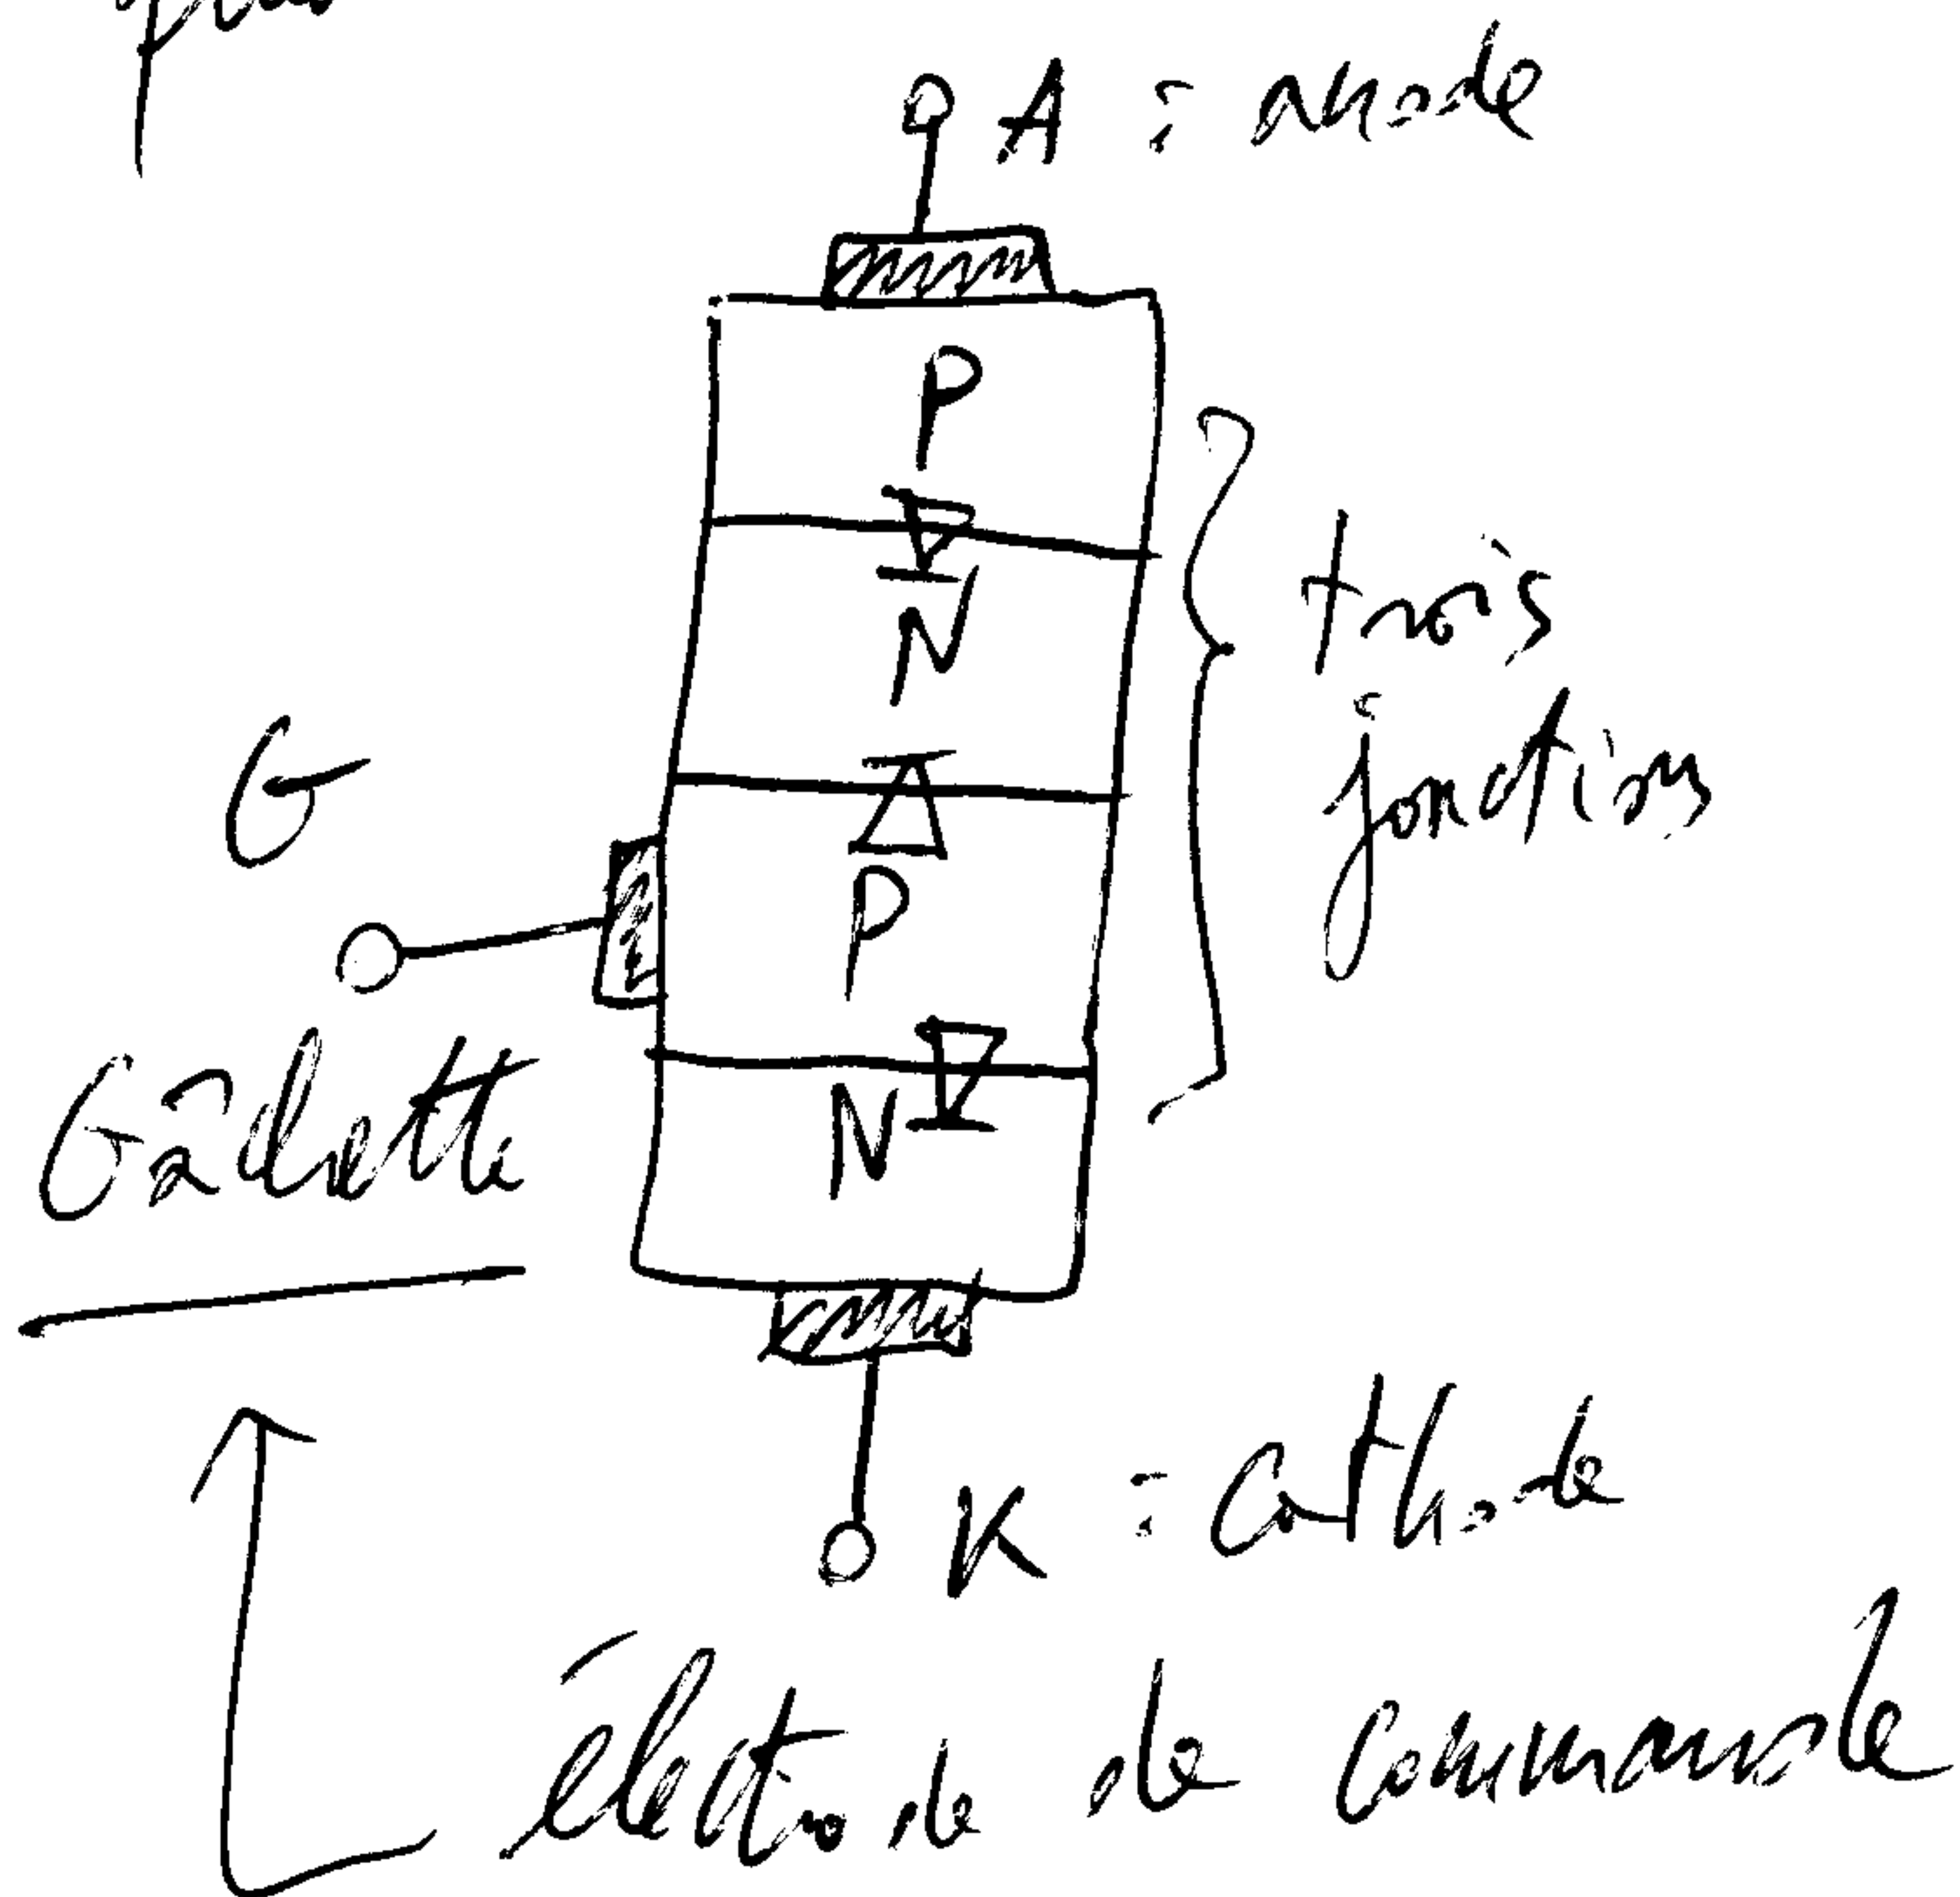 A : Anode
P
N
trois
jonctions
G
P
Gâchette
N
K : Cathode
électrode de commande